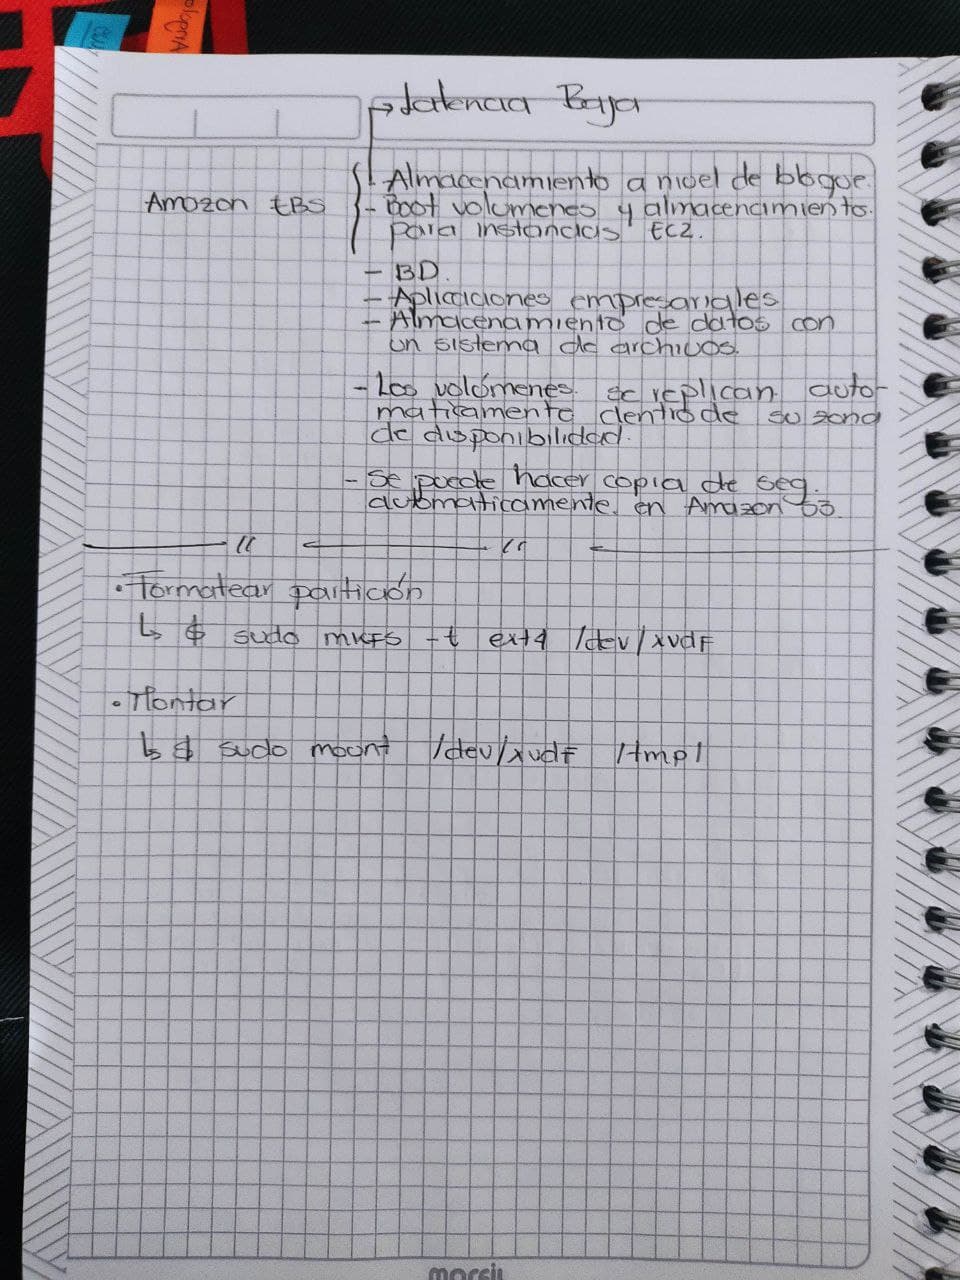 Latencia Baja
- Almacenamiento a nivel de bloque.
Amazon EBS
- Boot volúmenes y almacenamiento.
para instancias EC2.
- BD.
- Aplicaciones empresariales
- Almacenamiento de datos con
un sistema de archivos.
- Los volúmenes se replican auto-
maticamente dentro de su zona
de disponibilidad.
- Se puede hacer copia de seg.
automaticamente en Amazon S3.
• Formatear partición
↳ $ sudo mkfs -t ext4 /dev/xvdf
• Montar
↳ $ sudo mount /dev/xvdf /tmp/